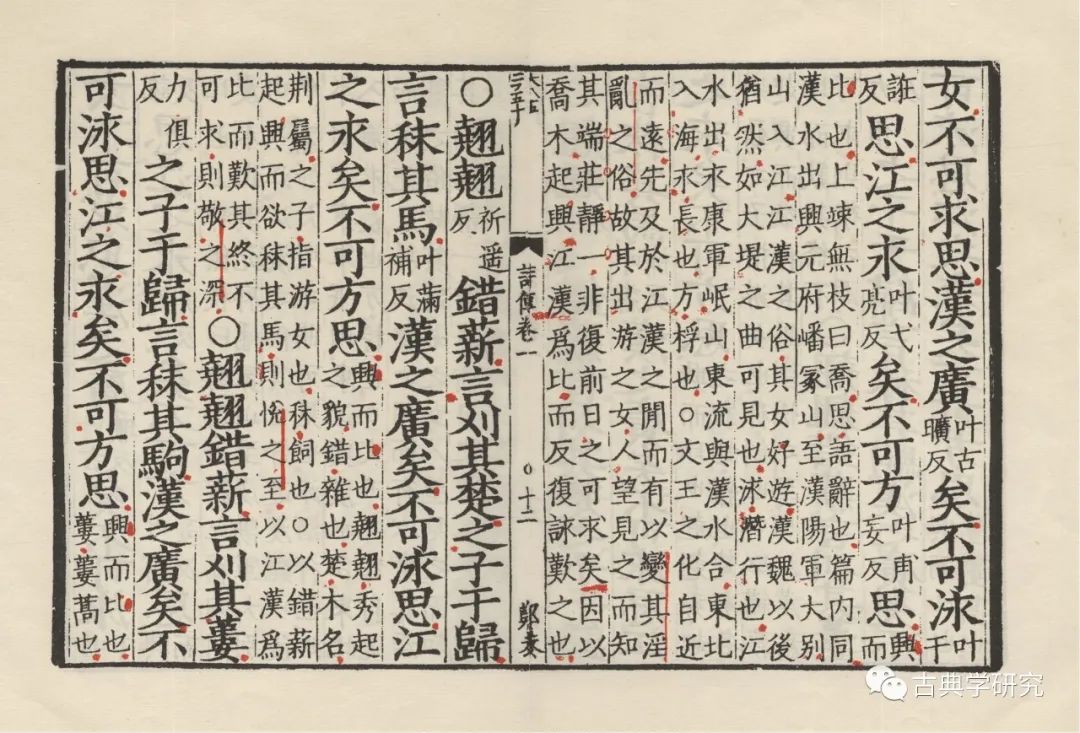 女不可求思漢之廣叶古曠反矣不可泳叶于
誑反思江之永叶弋亮反矣不可方叶甫妄反思興而
比也上竦無枝曰喬思語辭也篇内同
漢水出興元府嶓冢山至漢陽軍大別
山入江江漢之俗其女好遊漢魏以後
猶然如大堤之曲可見也泳潛行也江
水出永康軍岷山東流與漢水合東北
入海永長也方桴也○文王之化自近
而遠先及於江漢之間而有以變其淫
亂之俗故其出游之女人望見之而知
其端莊靜一非復前日之可求矣因以
喬木起興江漢爲比而反復詠歎之也
詩傳卷一 ○十二
○翹翹祈遥反錯薪言刈其楚之子于歸
言秣其馬叶滿補反漢之廣矣不可泳思江
之永矣不可方思興而比也翹翹秀起之貌錯雜也楚木名
荆屬之子指游女也秣飼也○以錯薪
起興而欲秣其馬則悅之至以江漢爲
比而歎其終不可求則敬之深○翹翹錯薪言刈其蔞
力俱反之子于歸言秣其駒漢之廣矣不
可泳思江之永矣不可方思興而比也蔞蔞蒿也
古典学研究